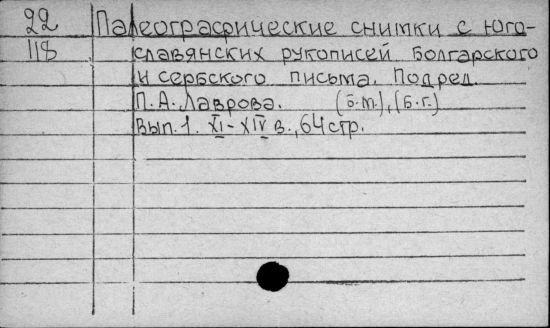 22 Палеографические снимки с юго-
118 славянских рукописей Болгарского
и сербского письма. Подред.
П.А. Лаврова. (б.м.), (б.г.)
Вып.1. XI-XIV в., 64 стр.